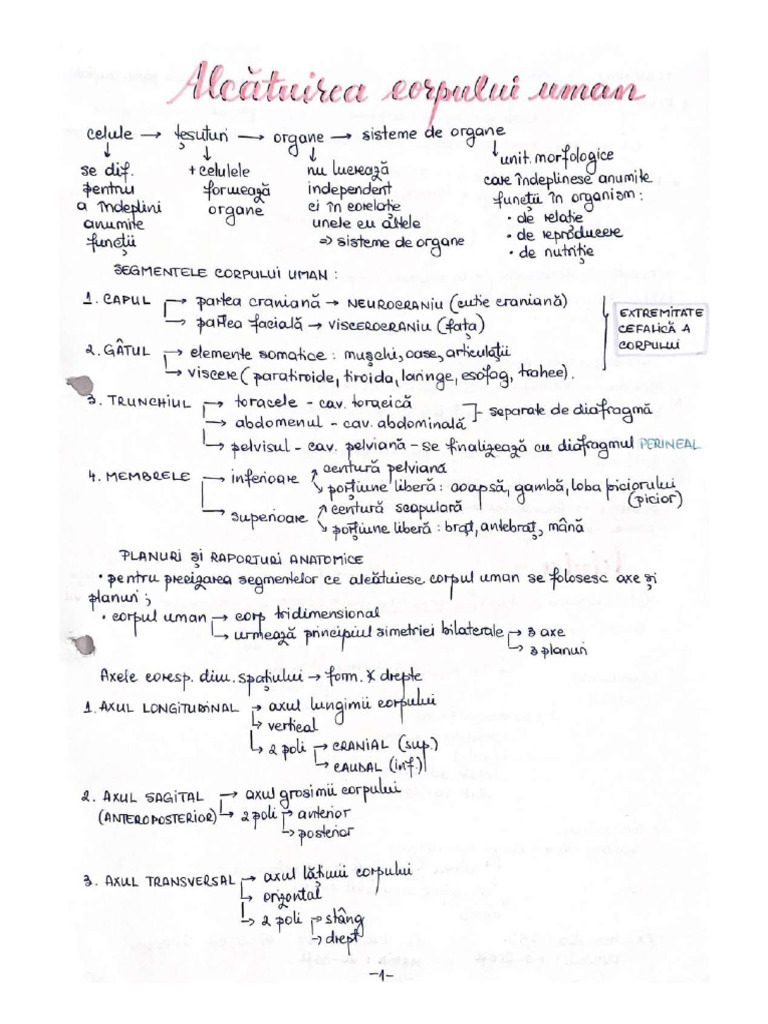 Alcătuirea corpului uman
celule → țesuturi → organe → sisteme de organe
se dif. pentru a îndeplini anumite funcții
+ celulele formează organe
nu lucrează independent ci în corelație unele cu altele => sisteme de organe
unit. morfologice care îndeplinesc anumite funcții în organism:
• de relație
• de reproducere
• de nutriție
SEGMENTELE CORPULUI UMAN:
1. CAPUL → partea craniană → NEUROCRANIU (cutie craniană)
→ partea facială → VISCEROCRANIU (fața)
EXTREMITATE CEFALICĂ A CORPULUI
2. GÂTUL → elemente somatice: mușchi, oase, articulații
→ viscere (paratiroide, tiroida, laringe, esofag, trahee).
3. TRUNCHIUL → toracele - cav. toracică
→ abdomenul - cav. abdominală
separate de diafragmă
→ pelvisul - cav. pelviană - se finalizează cu diafragmul PERINEAL
4. MEMBRELE → inferioare → centură pelviană
→ porțiune liberă: coapsă, gambă, laba piciorului (picior)
→ superioare → centură scapulară
→ porțiune liberă: braț, antebraț, mână
PLANURI ȘI RAPORTURI ANATOMICE
• pentru precizarea segmentelor ce alcătuiesc corpul uman se folosesc axe și
planuri;
• corpul uman → corp tridimensional
→ urmează principiul simetriei bilaterale → 3 axe
→ 3 planuri
Axele coresp. dim. spațiului → form. ∢ drepte
1. AXUL LONGITUDINAL → axul lungimii corpului
→ vertical
→ 2 poli → CRANIAL (sup.)
→ CAUDAL (inf.)
2. AXUL SAGITAL → axul grosimii corpului
(ANTEROPOSTERIOR) → 2 poli → anterior
→ posterior
3. AXUL TRANSVERSAL → axul lățimii corpului
→ orizontal
→ 2 poli → stâng
→ drept
-1-